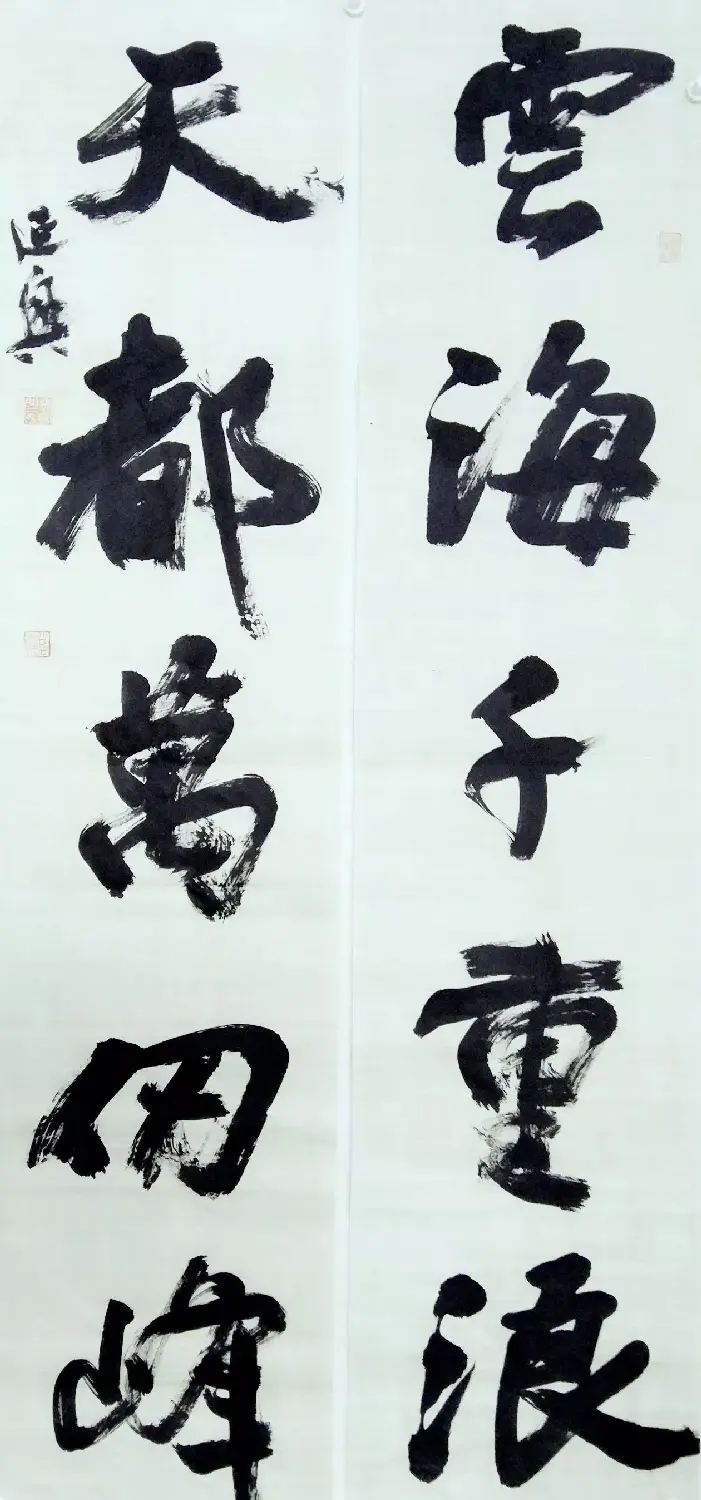 雲海千重浪
天都萬仞峰